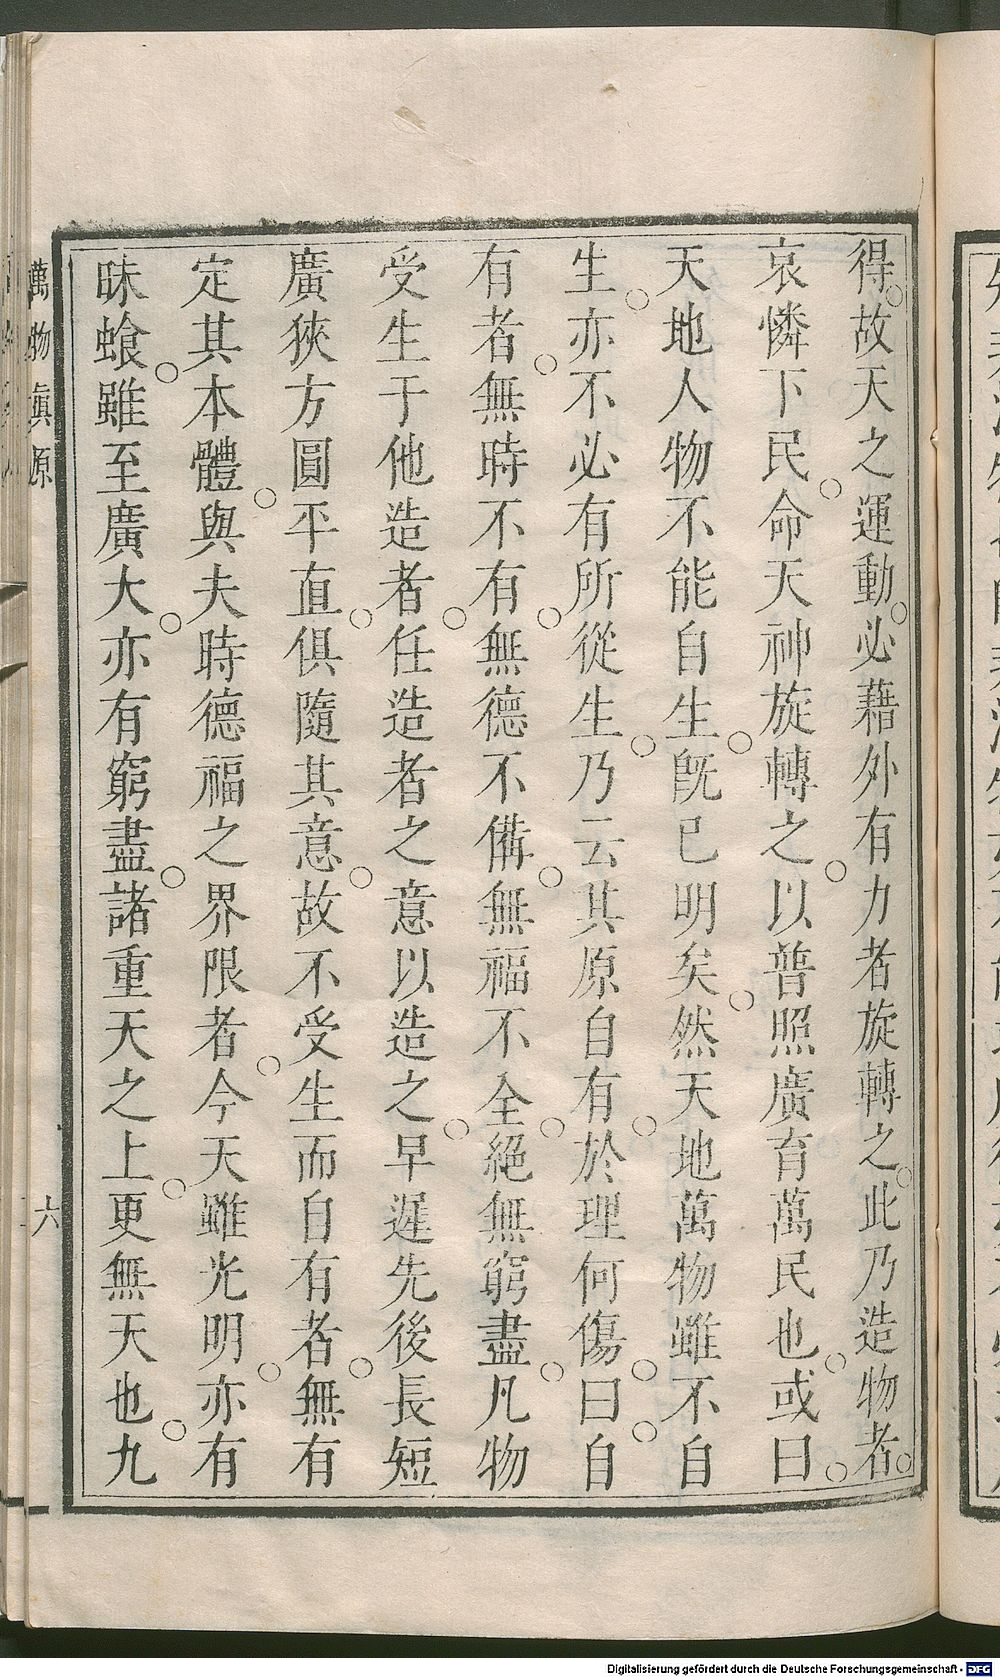 得。故天之運動。必藉外有力者旋轉之。此乃造物者。
哀憐下民。命天神旋轉之。以普照廣育萬民也。或曰。
天地人物不能自生。旣已明矣。然天地萬物雖不自
生。亦不必有所從生。乃云其原自有。於理何傷。曰。自
有者。無時不有。無德不備。無福不全。絕無窮盡。凡物
受生于他造者。任造者之意以造之。早遲先後長短
廣狹方圓平直。俱隨其意。故不受生而自有者。無有
定其本體。與夫時德福之界限者。今天雖光明。亦有
昧蝕。雖至廣大。亦有窮盡。諸重天之上。更無天也。九
萬物眞原
六
Digitalisierung gefördert durch die Deutsche Forschungsgemeinschaft - DFG